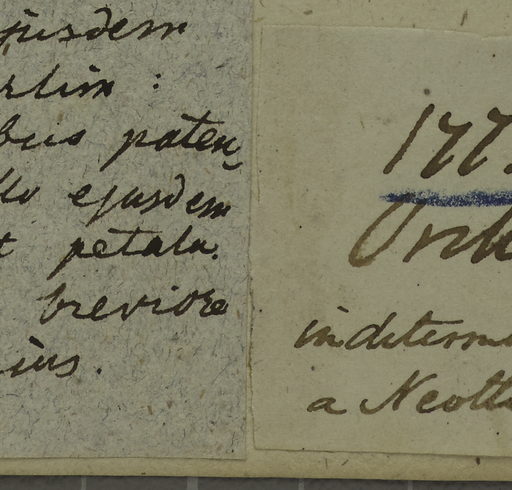 ejusdem
rlim :
bus paten,
llo ejusdem
t petala.
breviore
ius.
177
Orch
indeterm
a Neott